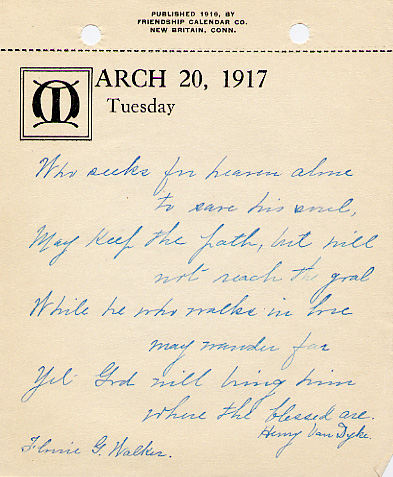 PUBLISHED 1916, BY
FRIENDSHIP CALENDAR CO.
NEW BRITAIN, CONN.
MARCH 20, 1917
Tuesday
Who seeks for heaven alone
to save his soul,
May keep the path, but will
not reach the goal
While he who walks in love
may wander far
Yet God will bring him
where the blessed are.
Henry Van Dyke.
Florrie G. Walker.